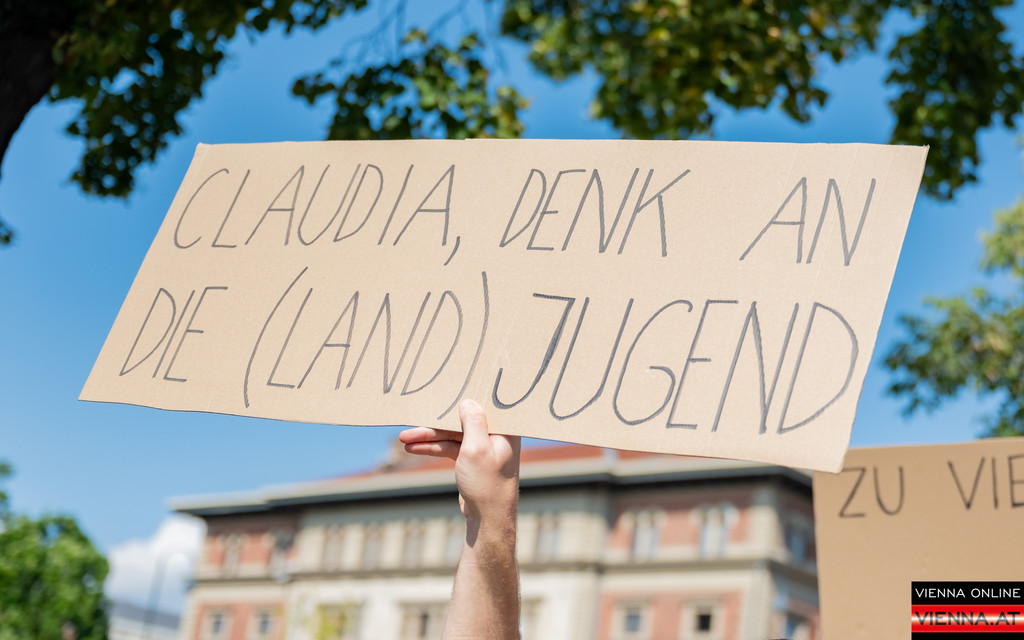 CLAUDIA, DENK AN
DIE (LAND) JUGEND
ZU VIE
VIENNA ONLINE
VIENNA.AT